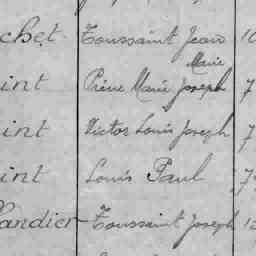 chet Toussaint Jean 10
Marie
int Pierre Marie Joseph 7
int Victor Louis Joseph 7
int Louis Paul 7
andier Toussaint Joseph 1